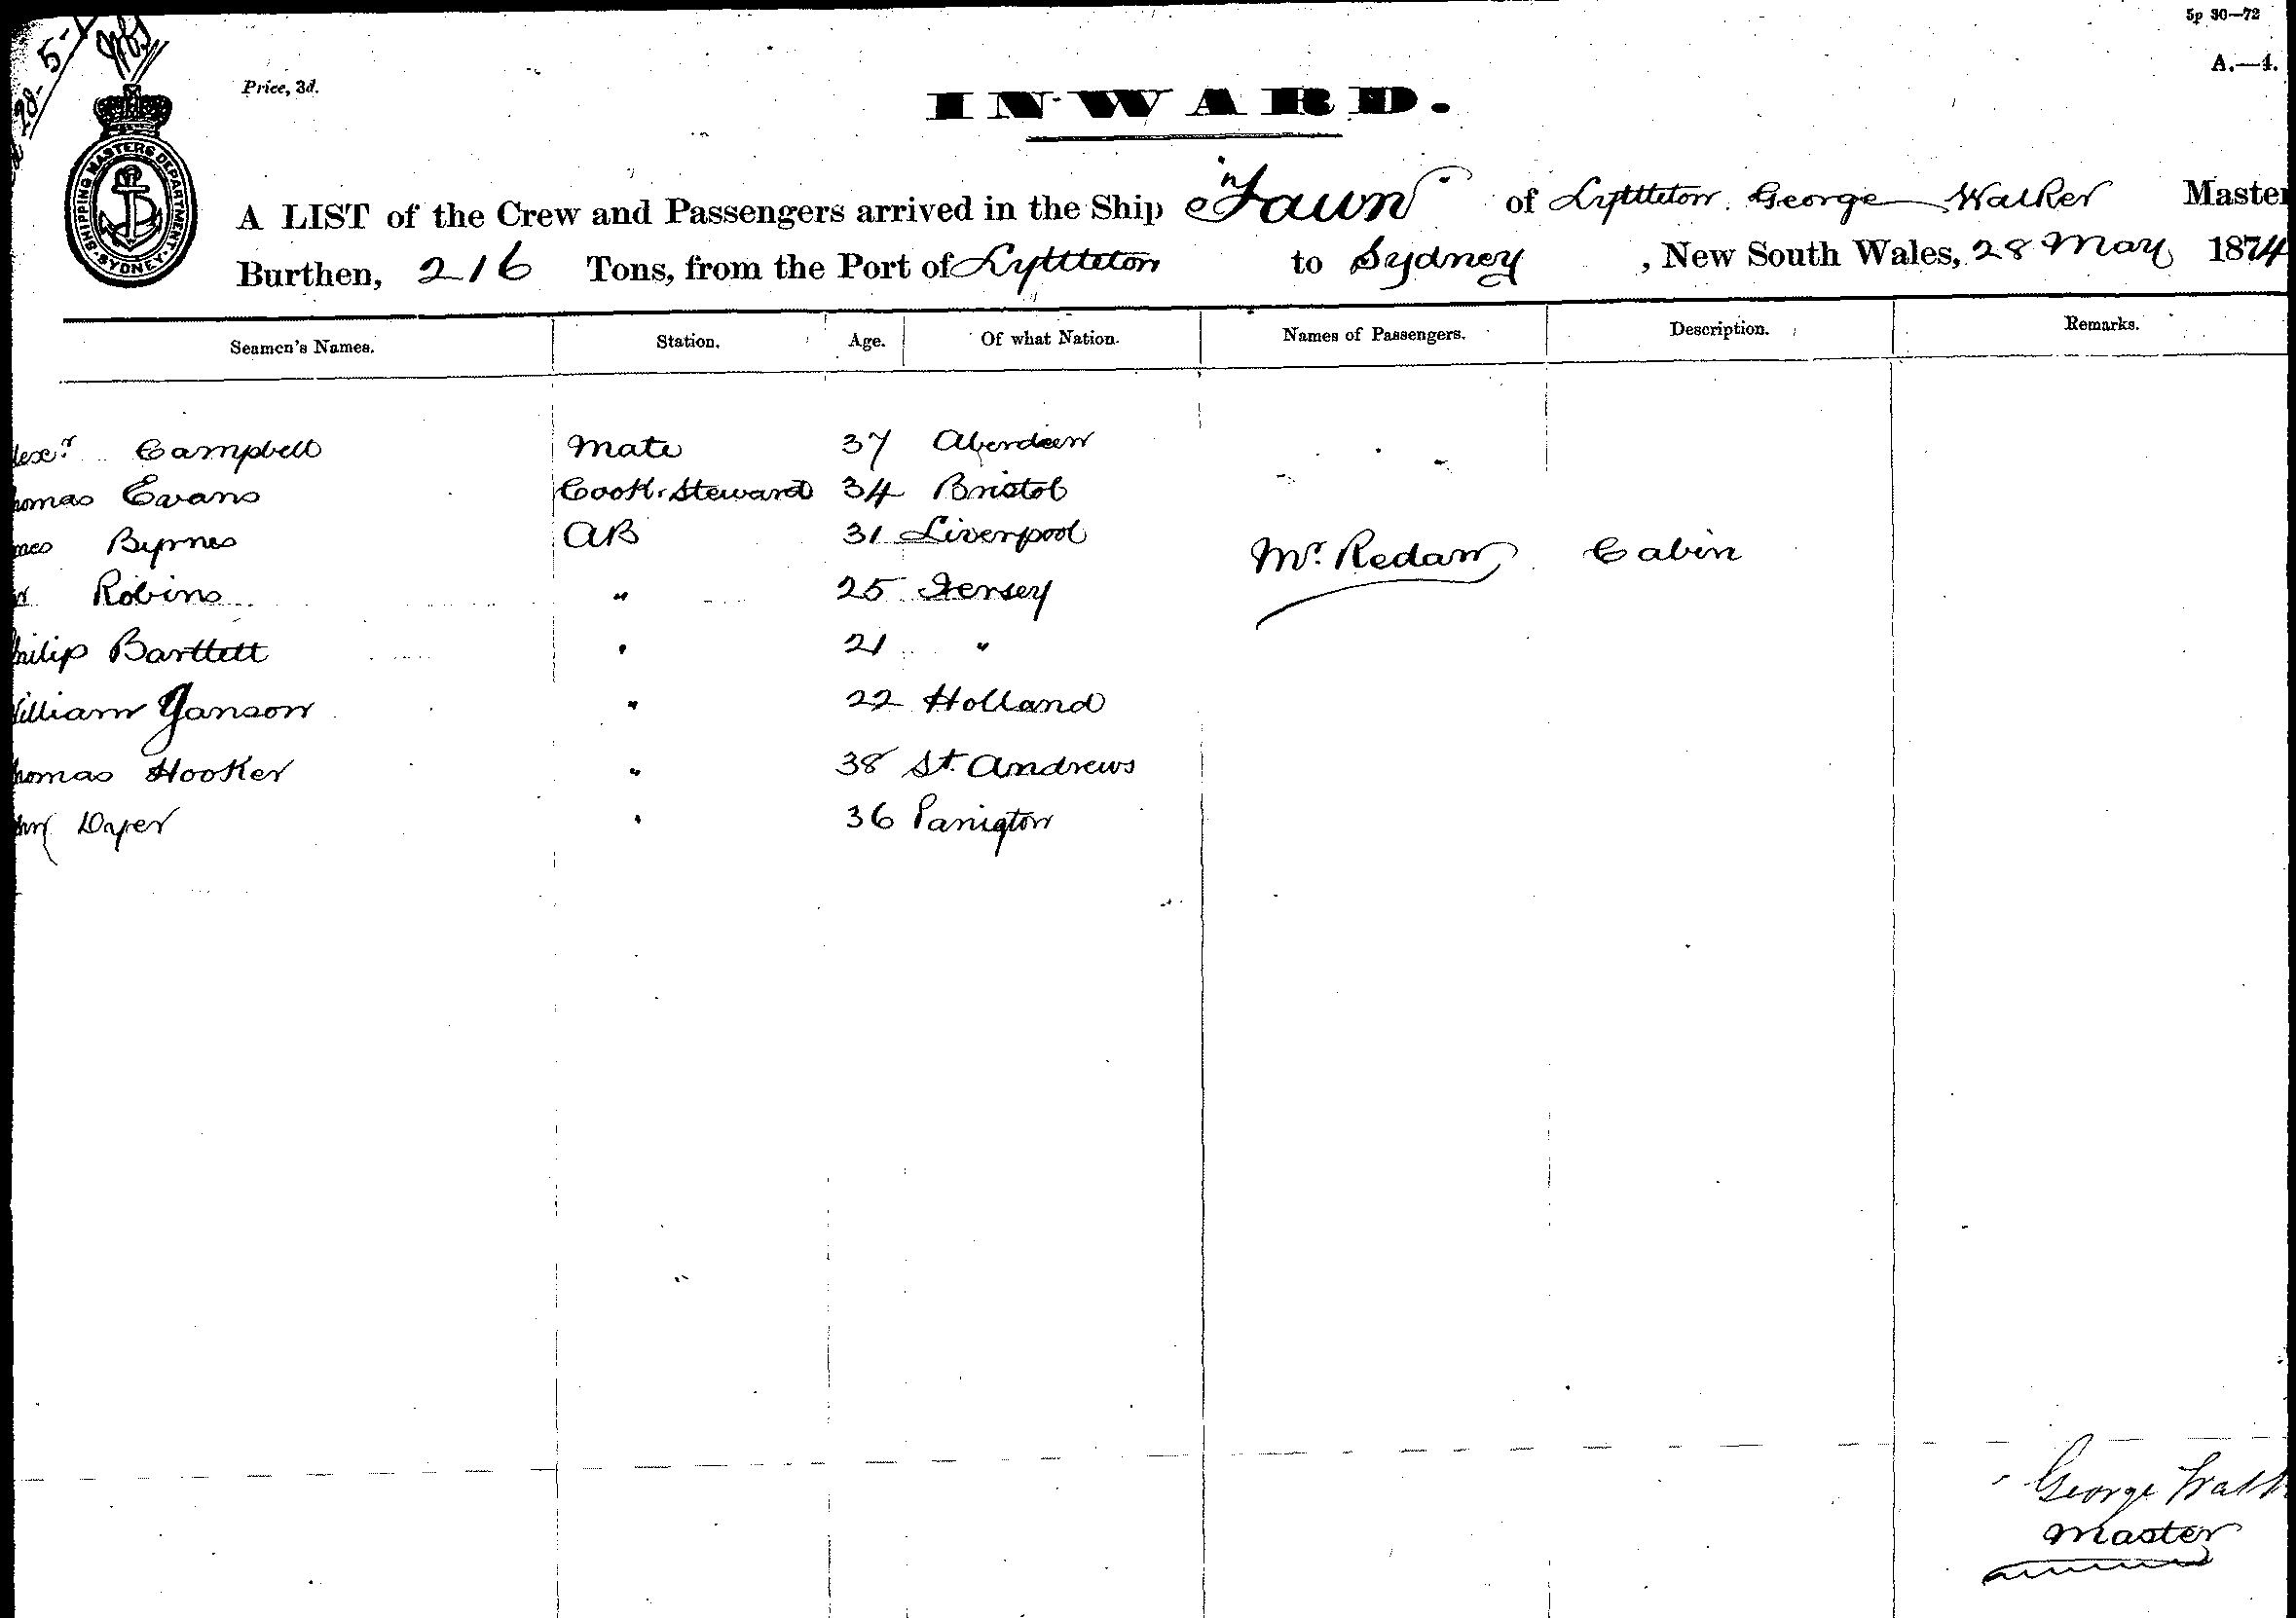 5p 30—72
A.—4.
Price, 3d.
INWARD.
SHIPPING MASTERS DEPARTMENT
SYDNEY
A LIST of the Crew and Passengers arrived in the Ship "Fawn" of Lyttleton George Walker Master
Burthen, 216 Tons, from the Port of Lyttleton to Sydney, New South Wales, 28 May 1874
Seamen's Names. Station. Age. Of what Nation. Names of Passengers. Description. Remarks.
lexr Campbell Mate 37 Aberdeen
homas Evans Cook & Steward 34 Bristol
mes Byrnes AB 31 Liverpool
Mr. Redan Cabin
Robins " 25 Jersey
hilip Bartlett " 21 "
William Yanson " 22 Holland
homas Hooker " 38 St. Andrews
Daper " 36
George
Master